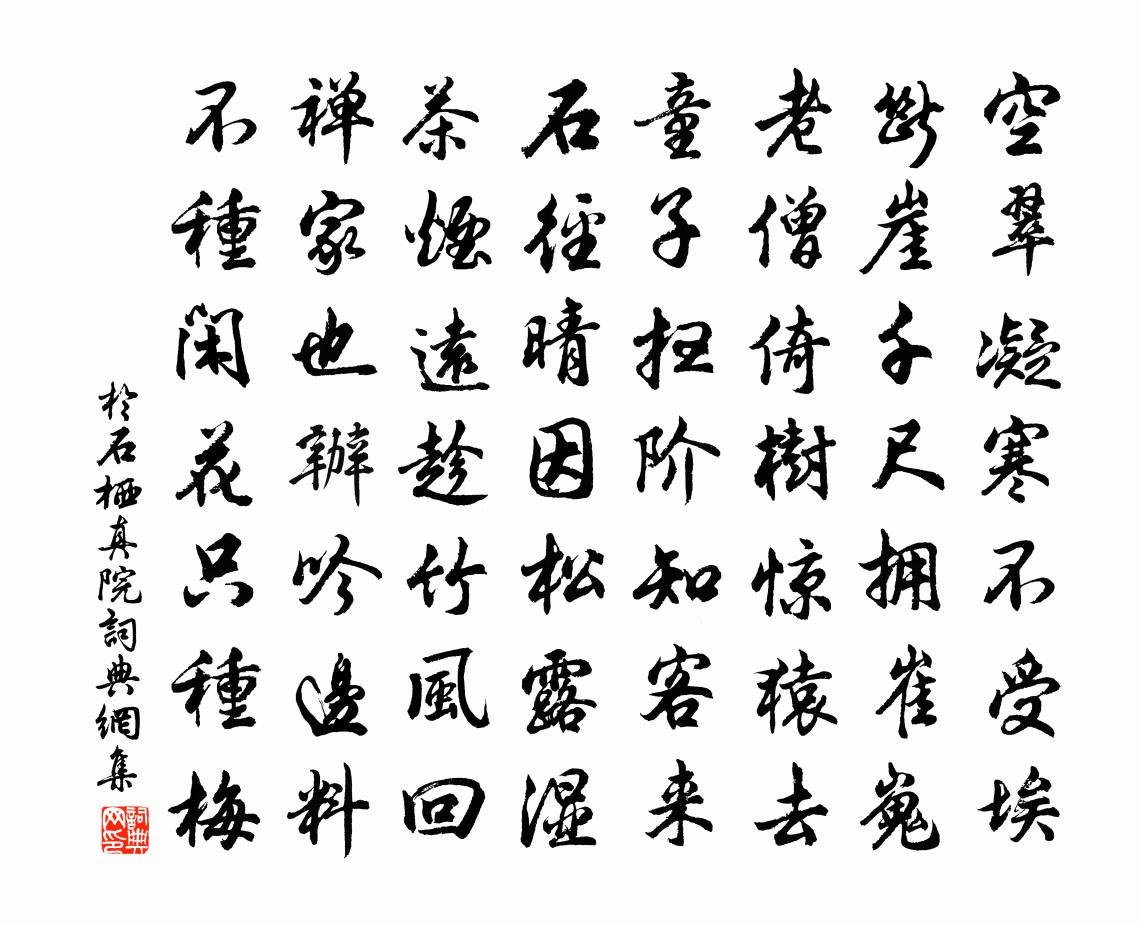 空翠凝寒不受埃
斷崖千尺拥崔嵬
老僧倚樹惊猿去
童子扫阶知客来
石徑晴因松露湿
茶煙遠趁竹風回
禅家也辦吟邊料
不種閑花只種梅
於石栖真院詞典網集
詞典网印